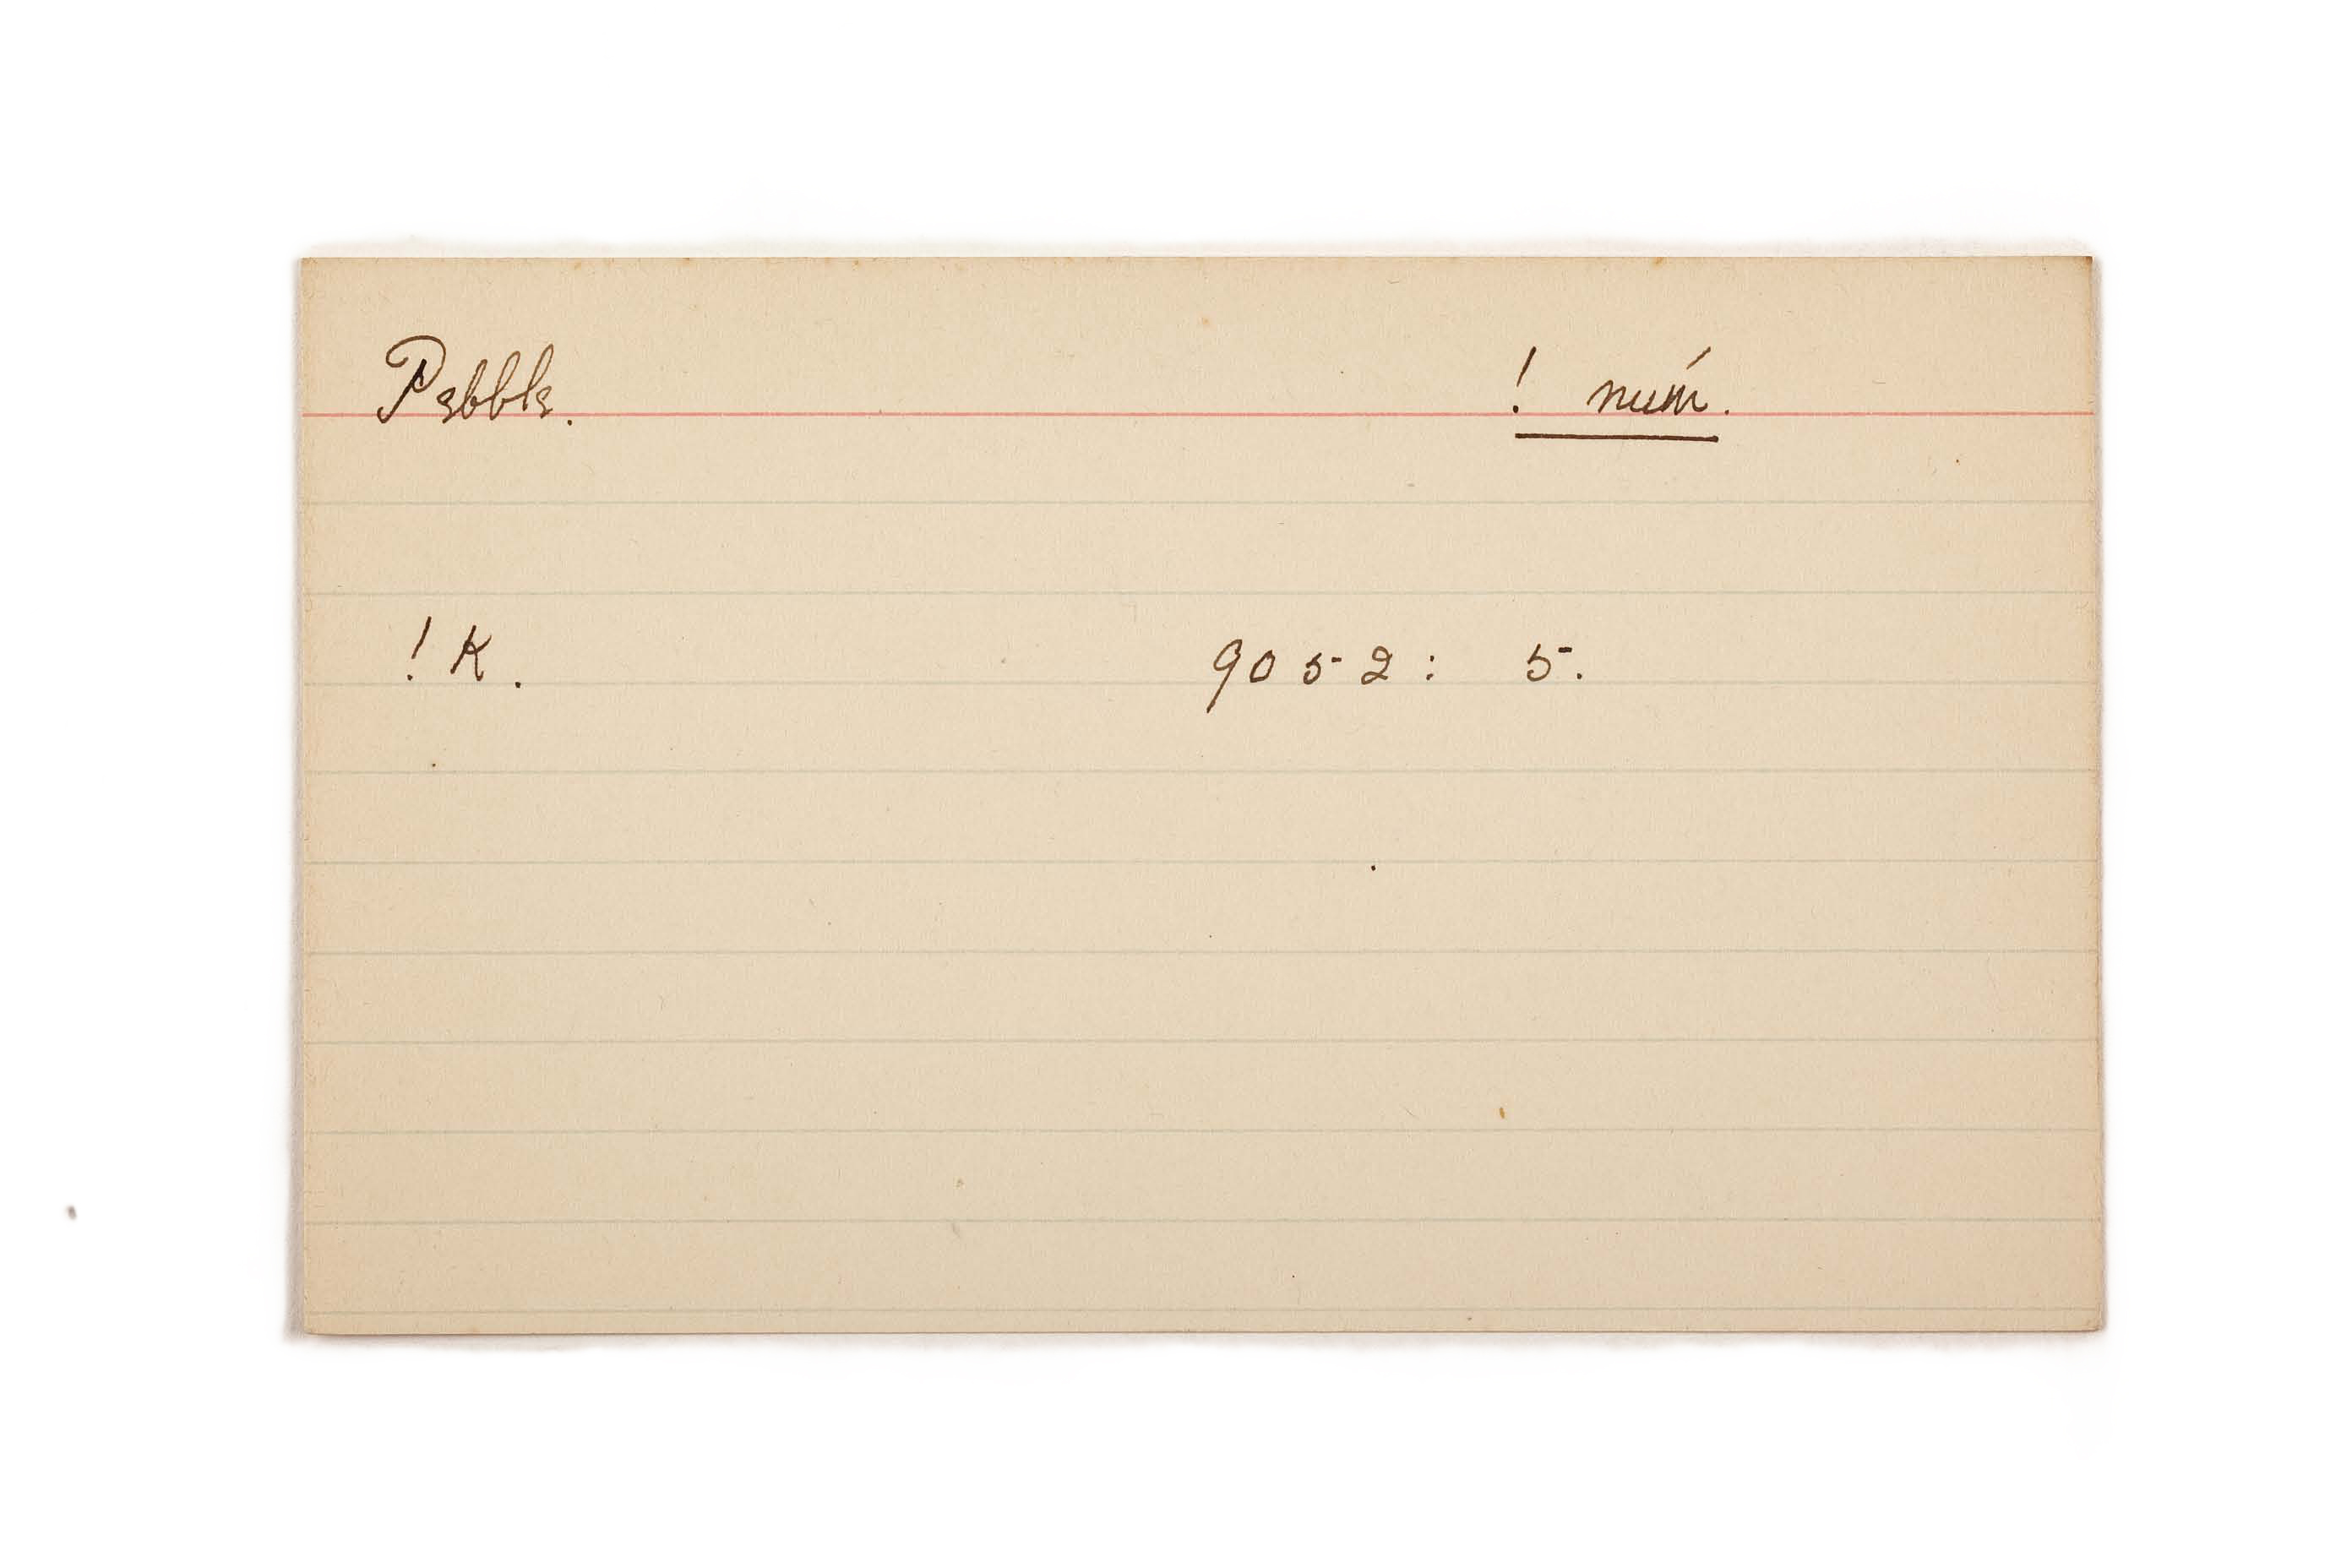 Pebble. ! nuḿ.
! K. 9052: 5.